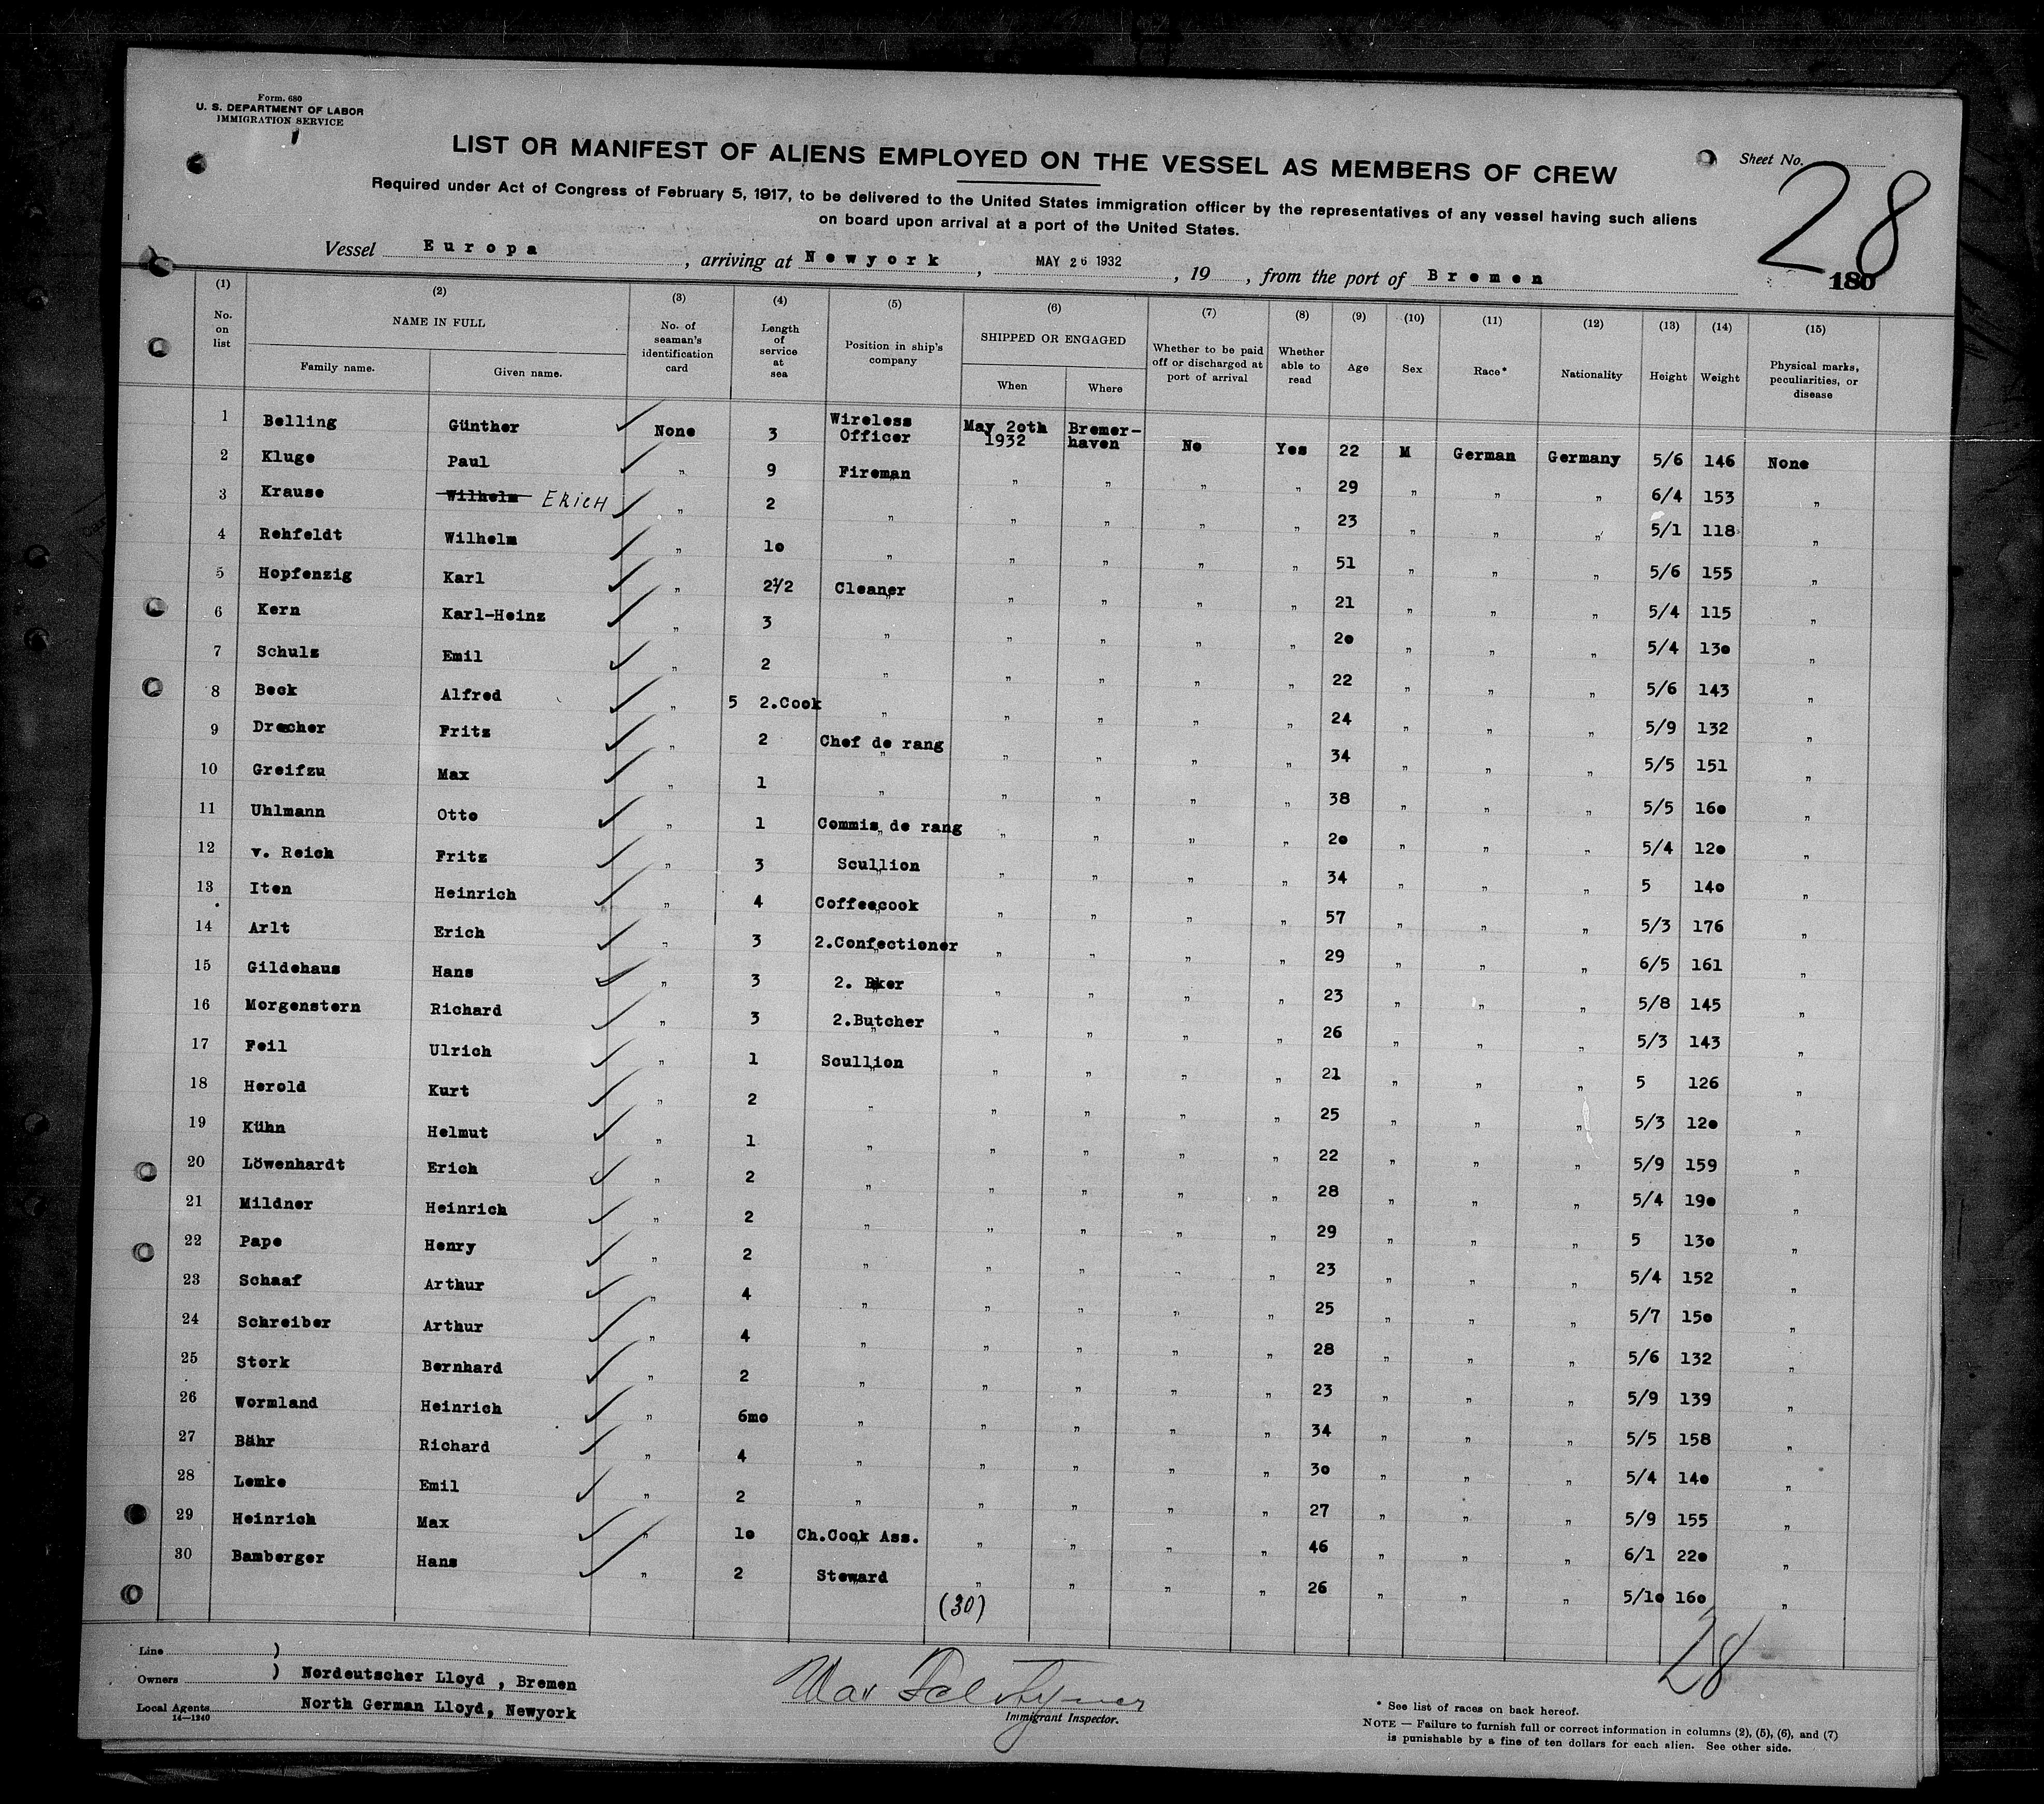 Form. 680
U. S. DEPARTMENT OF LABOR
IMMIGRATION SERVICE
LIST OR MANIFEST OF ALIENS EMPLOYED ON THE VESSEL AS MEMBERS OF CREW
Sheet No. 28
Required under Act of Congress of February 5, 1917, to be delivered to the United States immigration officer by the representatives of any vessel having such aliens
on board upon arrival at a port of the United States.
Vessel Europa, arriving at Newyork, MAY 26 1932, 19 , from the port of Bremen
180
(1) (2) (3) (4) (5) (6) (7) (8) (9) (10) (11) (12) (13) (14) (15)
No. on list NAME IN FULL Family name. Given name. No. of seaman's identification card Length of service at sea Position in ship's company SHIPPED OR ENGAGED When Where Whether to be paid off or discharged at port of arrival Whether able to read Age Sex Race* Nationality Height Weight Physical marks, peculiarities, or disease
1 Belling Günther ✓ None 3 Wireless Officer May 20th 1932 Bremer-haven No Yes 22 M German Germany 5/6 146 None
2 Kluge Paul ✓ " 9 Fireman " " " " 29 " " " 6/4 153 "
3 Krause Wilhelm ERICH ✓ " 2 " " " " " 23 " " " 5/1 118 "
4 Rehfeldt Wilhelm ✓ " 10 " " " " " 51 " " " 5/6 155 "
5 Hopfenzig Karl ✓ " 2 1/2 Cleaner " " " " 21 " " " 5/4 115 "
6 Kern Karl-Heinz ✓ " 3 " " " " " 20 " " " 5/4 130 "
7 Schulz Emil ✓ " 2 " " " " " 22 " " " 5/6 143 "
8 Beck Alfred ✓ " 5 2.Cook " " " " 24 " " " 5/9 132 "
9 Drecher Fritz ✓ " 2 Chef de rang " " " " 34 " " " 5/5 151 "
10 Greifzu Max ✓ " 1 " " " " " 38 " " " 5/5 160 "
11 Uhlmann Otto ✓ " 1 Commis de rang " " " " 20 " " " 5/4 120 "
12 v. Reich Fritz ✓ " 3 Scullion " " " " 34 " " " 5 140 "
13 Iten Heinrich ✓ " 4 Coffeecook " " " " 57 " " " 5/3 176 "
14 Arlt Erich ✓ " 3 2.Confectioner " " " " 29 " " " 6/5 161 "
15 Gildehaus Hans ✓ " 3 2. Bker " " " " 23 " " " 5/8 145 "
16 Morgenstern Richard ✓ " 3 2.Butcher " " " " 26 " " " 5/3 143 "
17 Feil Ulrich ✓ " 1 Scullion " " " " 21 " " " 5 126 "
18 Herold Kurt ✓ " 2 " " " " " 25 " " " 5/3 120 "
19 Kühn Helmut ✓ " 1 " " " " " 22 " " " 5/9 159 "
20 Löwenhardt Erich ✓ " 2 " " " " " 28 " " " 5/4 190 "
21 Mildner Heinrich ✓ " 2 " " " " " 29 " " " 5 130 "
22 Pape Henry ✓ " 2 " " " " " 23 " " " 5/4 152 "
23 Schaaf Arthur ✓ " 4 " " " " " 25 " " " 5/7 150 "
24 Schreiber Arthur ✓ " 4 " " " " " 28 " " " 5/6 132 "
25 Stork Bernhard ✓ " 2 " " " " " 23 " " " 5/9 139 "
26 Wormland Heinrich ✓ " 6mo " " " " " 34 " " " 5/5 158 "
27 Bähr Richard ✓ " 4 " " " " " 30 " " " 5/4 140 "
28 Lemke Emil ✓ " 2 " " " " " 27 " " " 5/9 155 "
29 Heinrich Max ✓ " 10 Ch.Cook Ass. " " " " 46 " " " 6/1 220 "
30 Bamberger Hans ✓ " 2 Steward " " " " 26 " " " 5/10 160 "
(30)
28
Line )
Owners ) Nordeutscher Lloyd , Bremen
Local Agents North German Lloyd, Newyork
14—1240
Max
Immigrant Inspector.
* See list of races on back hereof.
NOTE — Failure to furnish full or correct information in columns (2), (5), (6), and (7)
is punishable by a fine of ten dollars for each alien. See other side.